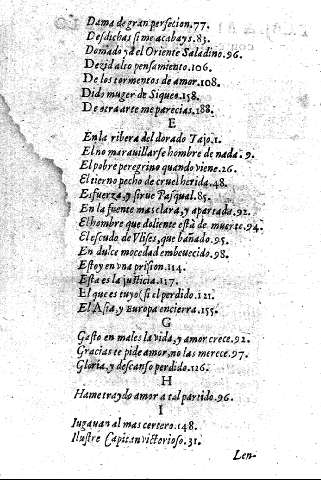 Dama de gran perfecion.77.
Desdichas si me acabays.83.
Domado yà el Oriente Saladino.96.
Dezid alto pensamiento.106.
De los tormentos de amor.108.
Dido muger de Siqueo.158.
De otra arte me parecias.188.
E
En la ribera del dorado Tajo.1.
El no marauillarse hombre de nada.9.
El pobre peregrino quando viene.26.
El tierno pecho de cruel herida.48.
Esfuerza, y sirue Pasqual.85.
En la fuente mas clara, y apartada.92.
El hombre que doliente està de muerte.94.
El escudo de Vlises, que bañado.95.
En dulce mocedad embeuecido.98.
Estoy en vna prision.114.
Esta es la justicia.117.
El que es tuyo (si el perdido.121.
El Asia, y Europa encierra.155.
G
Gasto en males la vida, y amor crece.92.
Gracias te pide amor, no las merece.97.
Gloria, y descanso perdido.126.
H
Hame traydo amor a tal partido.96.
I
Iugauan al mas certero.148.
Ilustre Capitan victorioso.31.
Len-